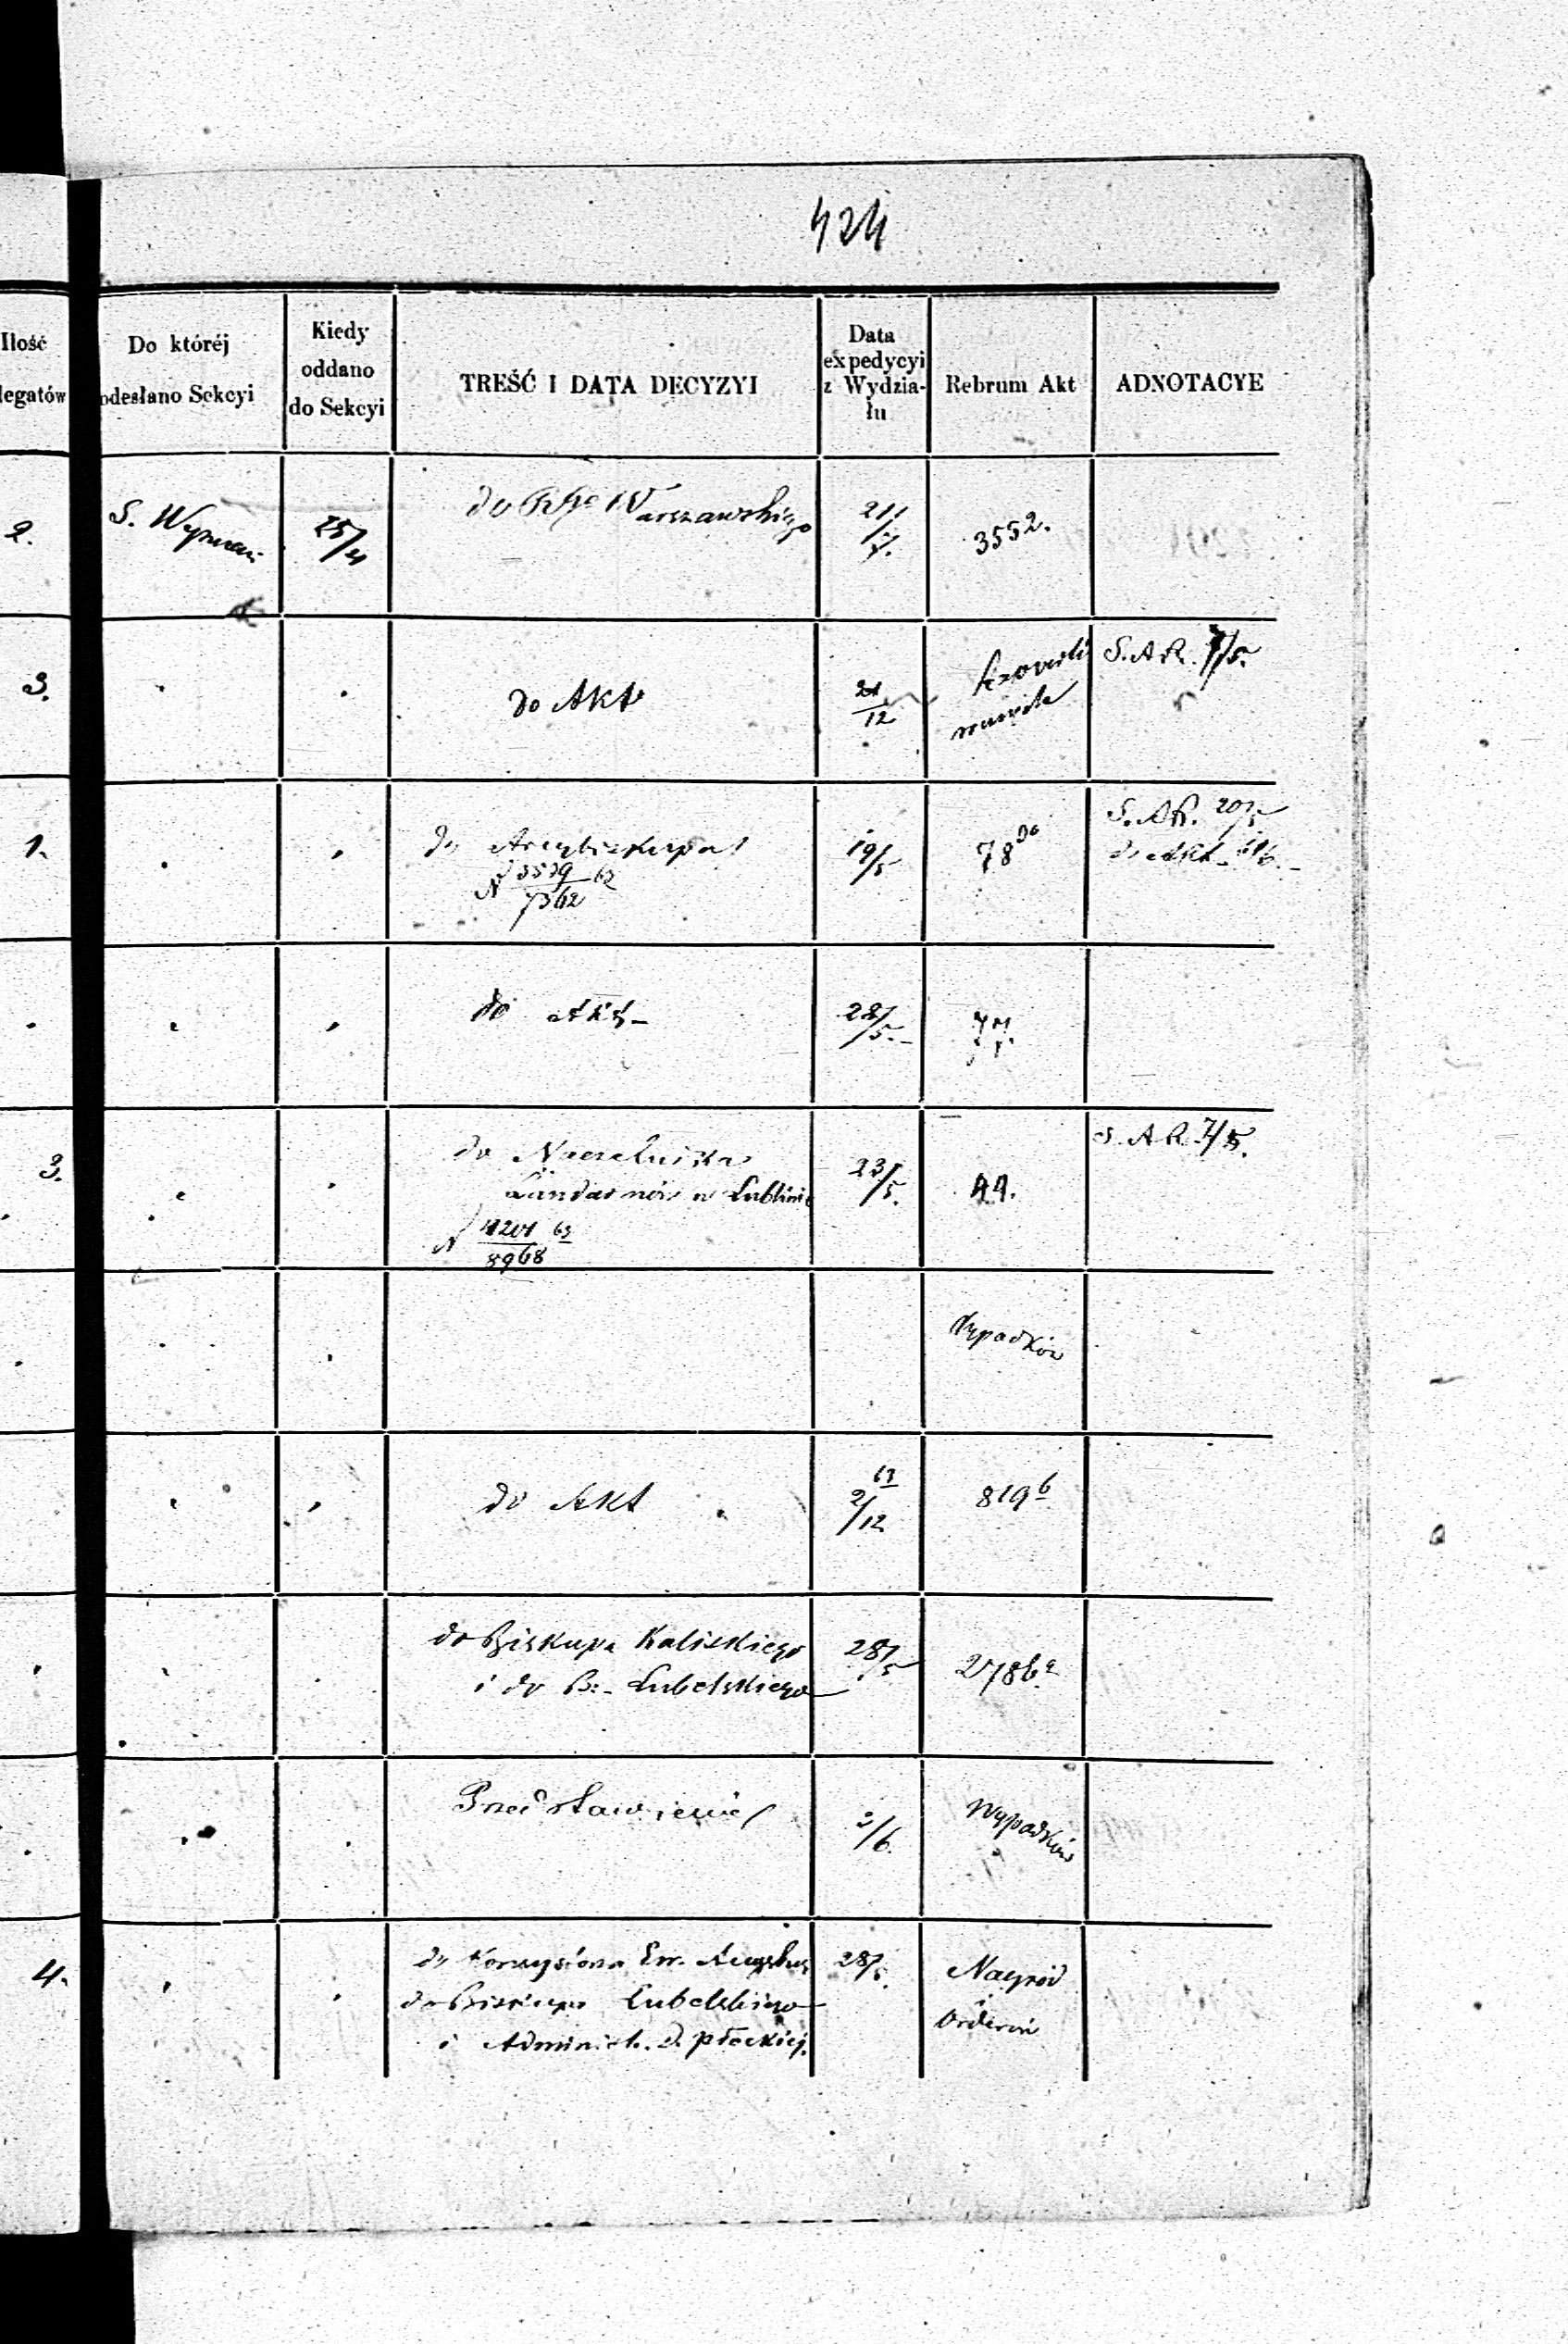 424
Ilość
legatów
Do któréj
odesłano Sekcyi
Kiedy
oddano
do Sekcyi
TREŚĆ I DATA DECYZYI
Data
expedycyi
z Wydzia-
łu
Rebrum Akt
ADNOTACYE
2.
S. Wyznań
25/4
do Warszawskiego
21/
3552.
3.
do Akt
21/12
S. A R. 7/5.
1.
do Arcybiskupa
N 3539 63
7362
19/5
78
S. A R. 20/5
do Akt
do Akt
28/5.
3.
do Naczelnika
Żandarmów w Lublinie
N 4201 63
8968
23/5.
S. A R 7/5.
Wypadków
do Akt
63
2/12
819 b
do Biskupa Kaliskiego
i do B. Lubelskiego
28/5
2786
Przedstawienie
2/6.
Wypadków
4.
do Konsystorza Ew. Augsbur
do Biskupa Lubelskiego
i Administ. D. Płockiej.
28/5.
Nagród
i
Orderów